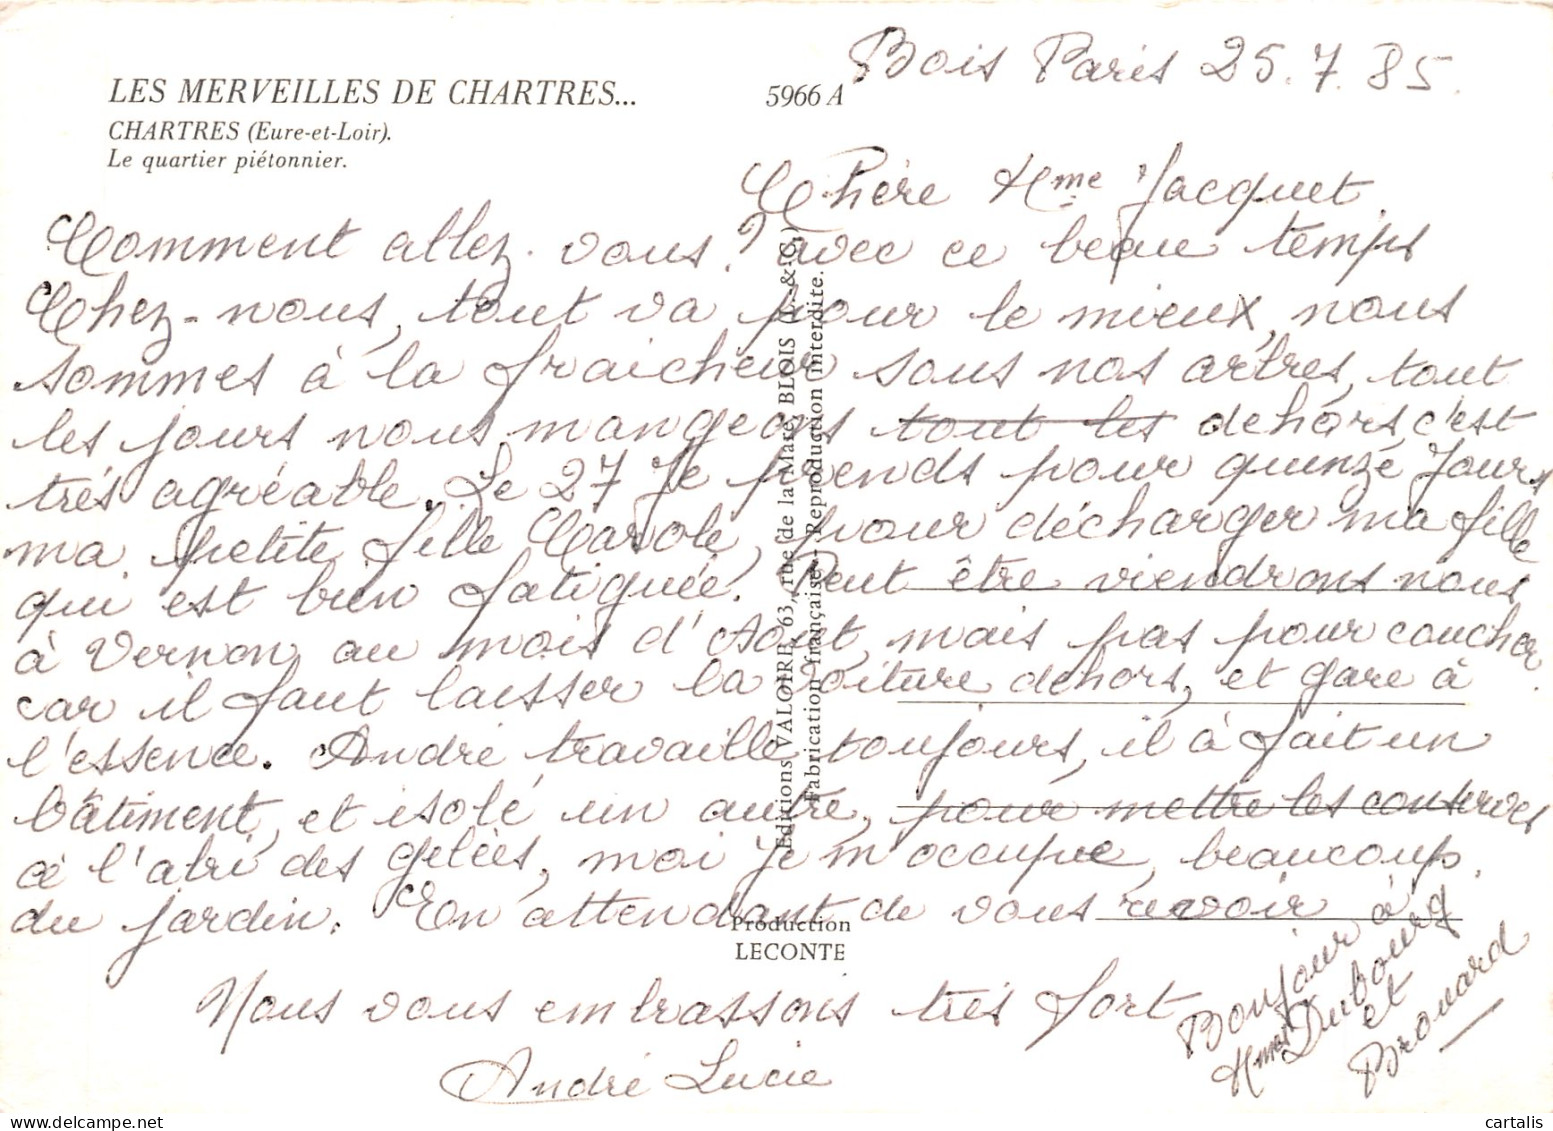 LES MERVEILLES DE CHARTRES...
CHARTRES (Eure-et-Loir).
Le quartier piétonnier.
5966 A
Bois Paris 25.7.85.
Chère Mme Jacquet.
Comment allez-vous? avec ce beau temps
Chez-nous, tout va pour le mieux, nous
sommes à la fraicheur sous nos artres, tout
les jours nous mangeons tout les dehors, c'est
très agréable. Le 27 Je prends pour quinze Jours
ma petite fille Carole, pour décharger ma fille
qui est bien fatiguée. Peut être viendrons nous
à Vernon au mois d'Août, mais pas pour coucher
car il faut laisser la voiture dehors, et gare à
l'essence. André travaille toujours, il à fait un
bâtiment, et isolé un autre, pour mettre les conserves
à l'abri des gelées, moi Je m'occupe, beaucoup
du jardin. En attendant de vous revoir
Nous vous embrassons très fort
André Lucie
Bonjour à
Mmes Dubourg
et
Brouard
Editions VALOIRE 63, rue de la Mare, BLOIS (L.-&-C.)
Fabrication française - Reproduction interdite.
Production
LECONTE
www.cartalis.com
cartalis